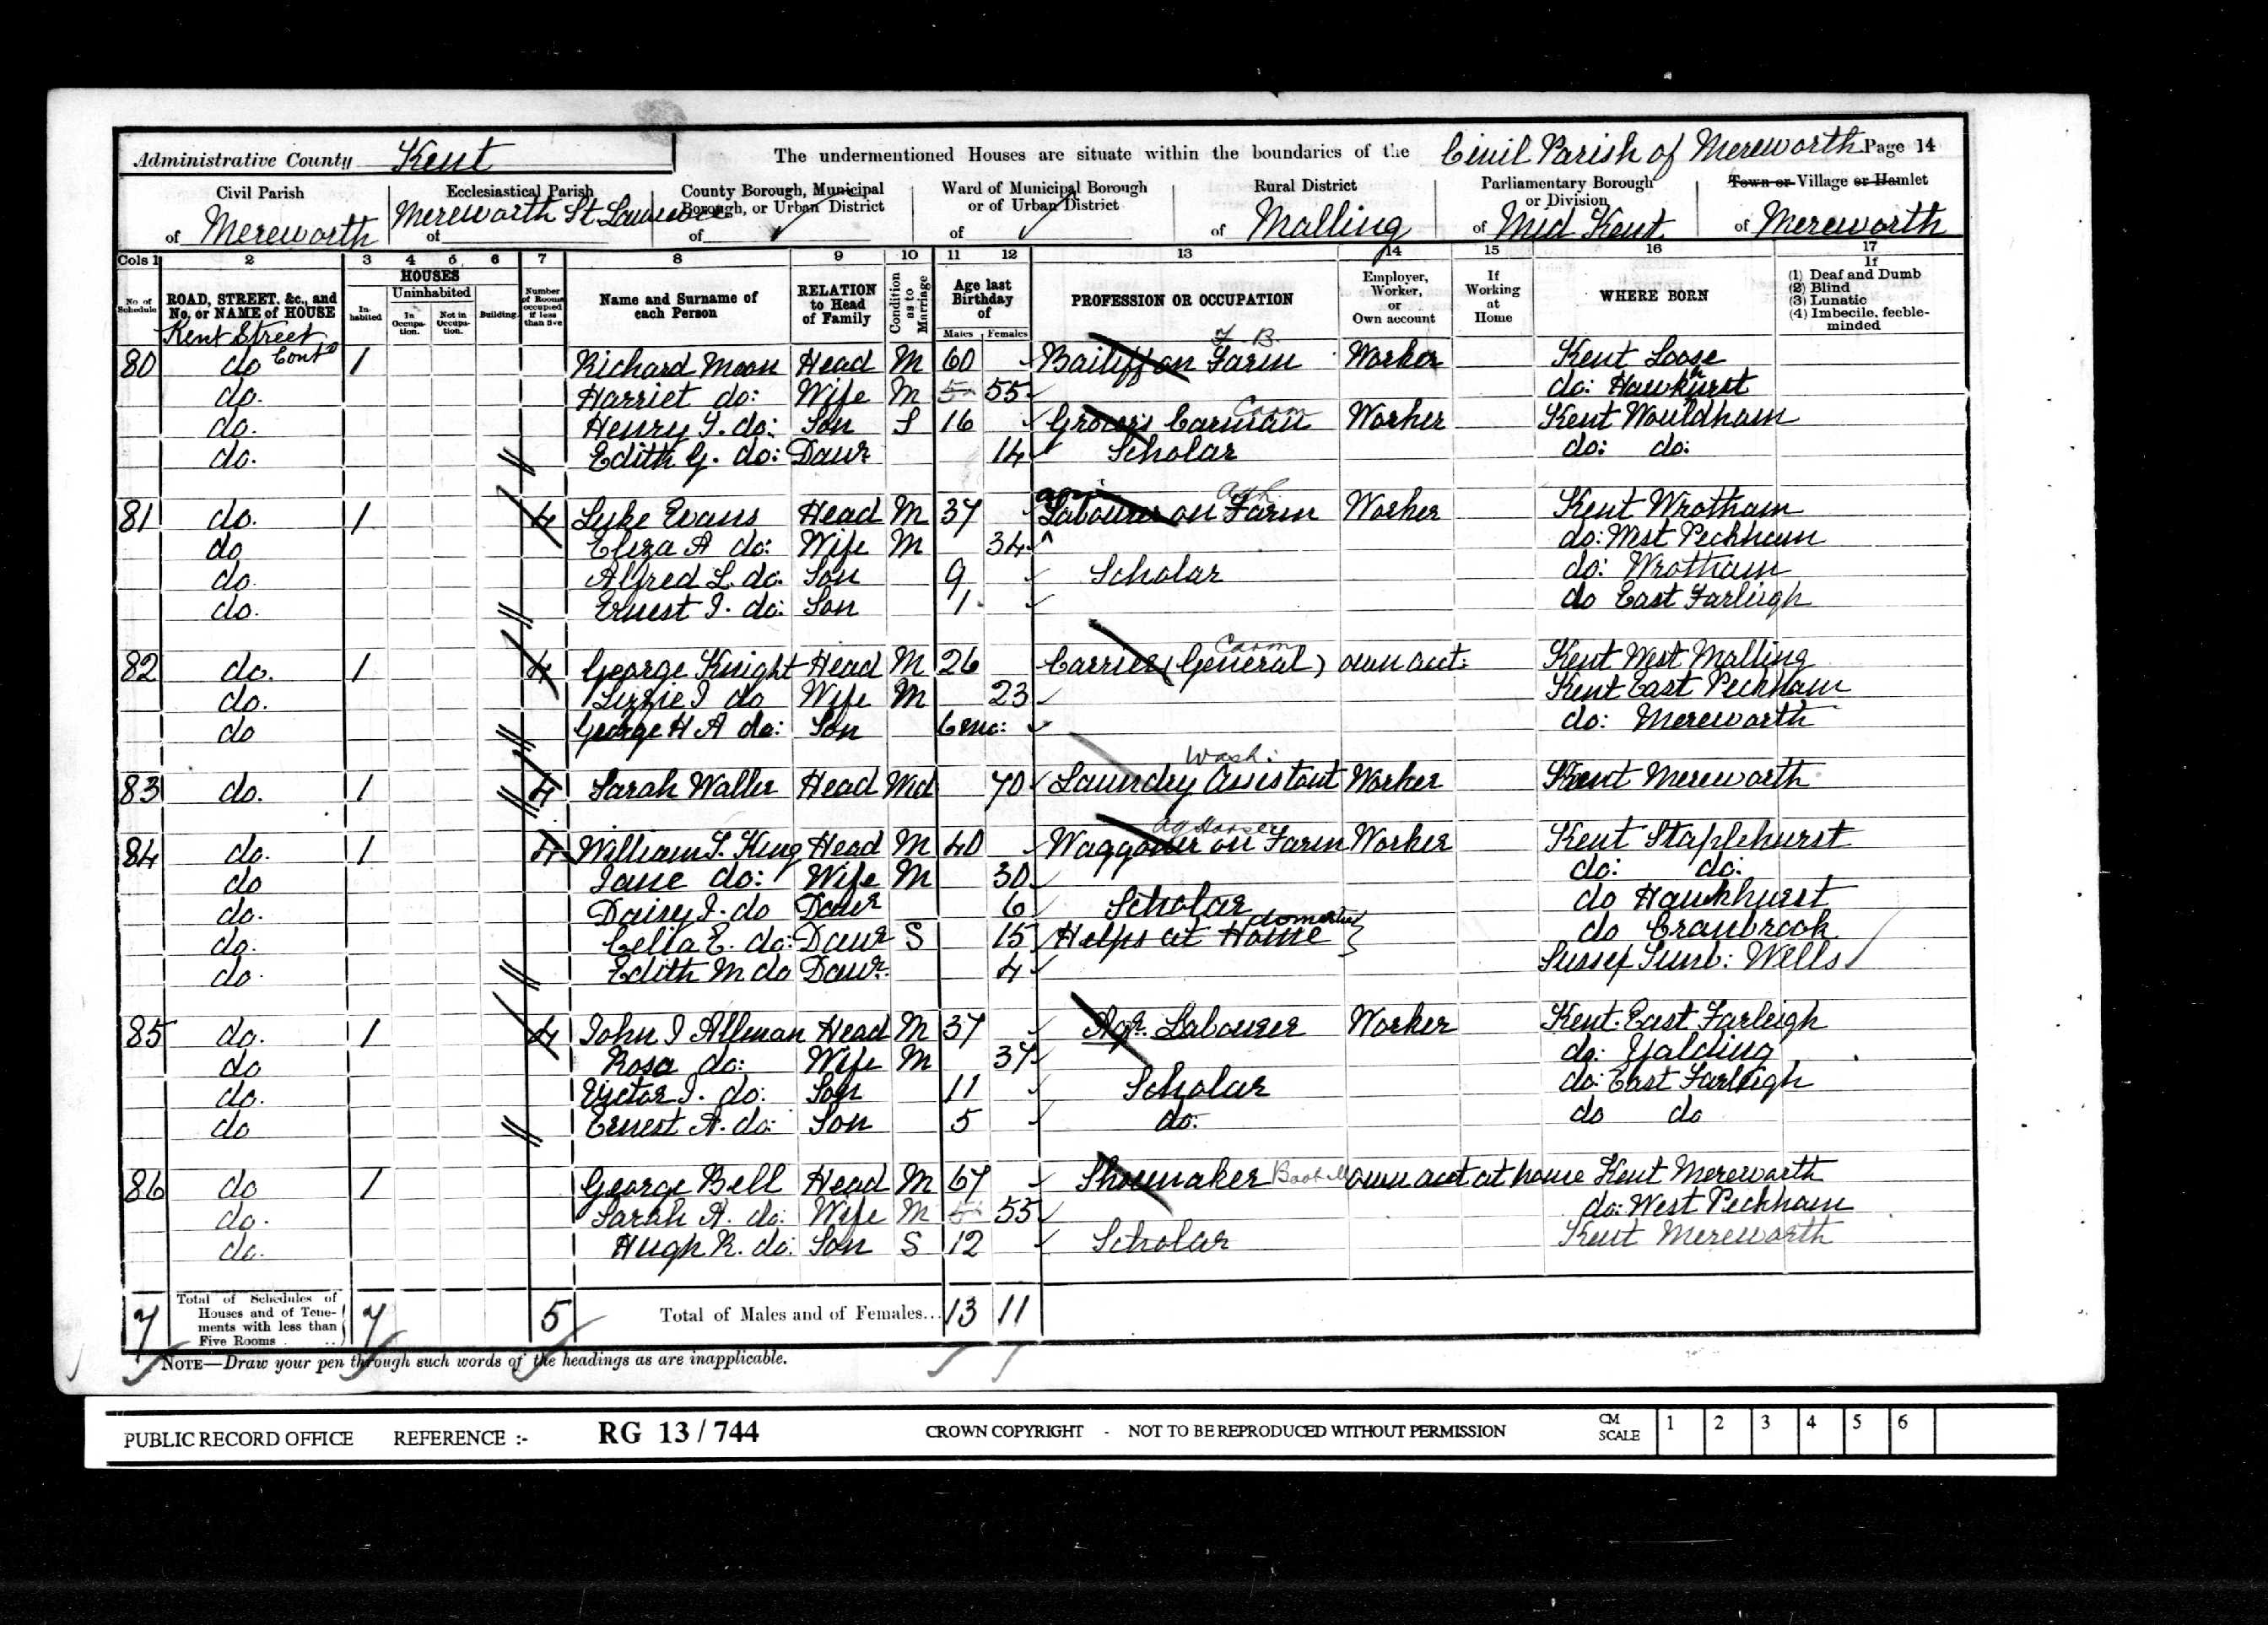 Administrative County Kent The undermentioned Houses are situate within the boundaries of the Civil Parish of Mereworth Page 14
Civil Parish of Mereworth
Ecclesiastical Parish of Mereworth St. Lawrence
County Borough, Municipal Borough, or Urban District of
Ward of Municipal Borough or of Urban District of
Rural District of Malling
Parliamentary Borough or Division of Mid Kent
Town or Village or Hamlet of Mereworth
Cols 1 2 3 4 5 6 7 8 9 10 11 12 13 14 15 16 17
No. of Schedule
ROAD, STREET, &c., and No. or NAME of HOUSE
HOUSES
Inhabited
Uninhabited
In Occupation.
Not in Occupation.
Building.
Number of Rooms occupied if less than five
Name and Surname of each Person
RELATION to Head of Family
Condition as to Marriage
Age last Birthday of
Males Females
PROFESSION OR OCCUPATION
Employer, Worker, or Own account
If Working at Home
WHERE BORN
If
(1) Deaf and Dumb
(2) Blind
(3) Lunatic
(4) Imbecile, feeble-minded
Kent Street
80 do Contd 1 Richard Moon Head M 60 Bailiff on Farm F. B. Worker Kent Loose
do. Harriet do: Wife M 55 do: Hawkhurst
do. Henry J. do: Son S 16 Grocer's Carman Worker Kent Wouldham
do. Edith G. do: Daur 14 Scholar do: do:
81 do. 1 4 Luke Evans Head M 37 Labourer on Farm Worker Kent Wrotham
do Eliza A do: Wife M 34 do: West Peckham
do. Alfred L. do: Son 9 Scholar do: Wrotham
do. Ernest J. do: Son 1 do East Farleigh
82 do. 1 4 George Knight Head M 26 Carrier (General) own acct: Kent West Malling
do. Lizzie J do Wife M 23 Kent East Peckham
do George H A do: Son 6 mo: do: Mereworth
83 do. 1 4 Sarah Waller Head Wid 70 Laundry Assistant Wash: Worker Kent Mereworth
84 do. 1 4 William S. King Head M 40 Waggoner on Farm ag Horse Worker Kent Staplehurst
do Jane do: Wife M 30 do: do:
do. Daisy J. do Daur 6 Scholar do Hawkhurst
do. Celia E. do: Daur S 15 Helps at Home domestic do Cranbrook
do. Edith M do Daur. 4 Sussex Tunb: Wells
85 do. 1 4 John J Allman Head M 37 Agr. Labourer Worker Kent. East Farleigh
do Rosa do: Wife M 37 do: Yalding
do. Victor J. do: Son 11 Scholar do: East Farleigh
do Ernest A. do: Son 5 do: do do
86 do 1 George Bell Head M 67 Shoemaker own acct at home Kent Mereworth
do. Sarah A. do: Wife M 55 do: West Peckham
do. Hugh R. do: Son S 12 Scholar Kent Mereworth
7 Total of Schedules of Houses and of Tenements with less than Five Rooms 7 5 Total of Males and of Females... 13 11
NOTE—Draw your pen through such words of the headings as are inapplicable.
PUBLIC RECORD OFFICE REFERENCE :- RG 13 / 744 CROWN COPYRIGHT - NOT TO BE REPRODUCED WITHOUT PERMISSION CM SCALE 1 2 3 4 5 6